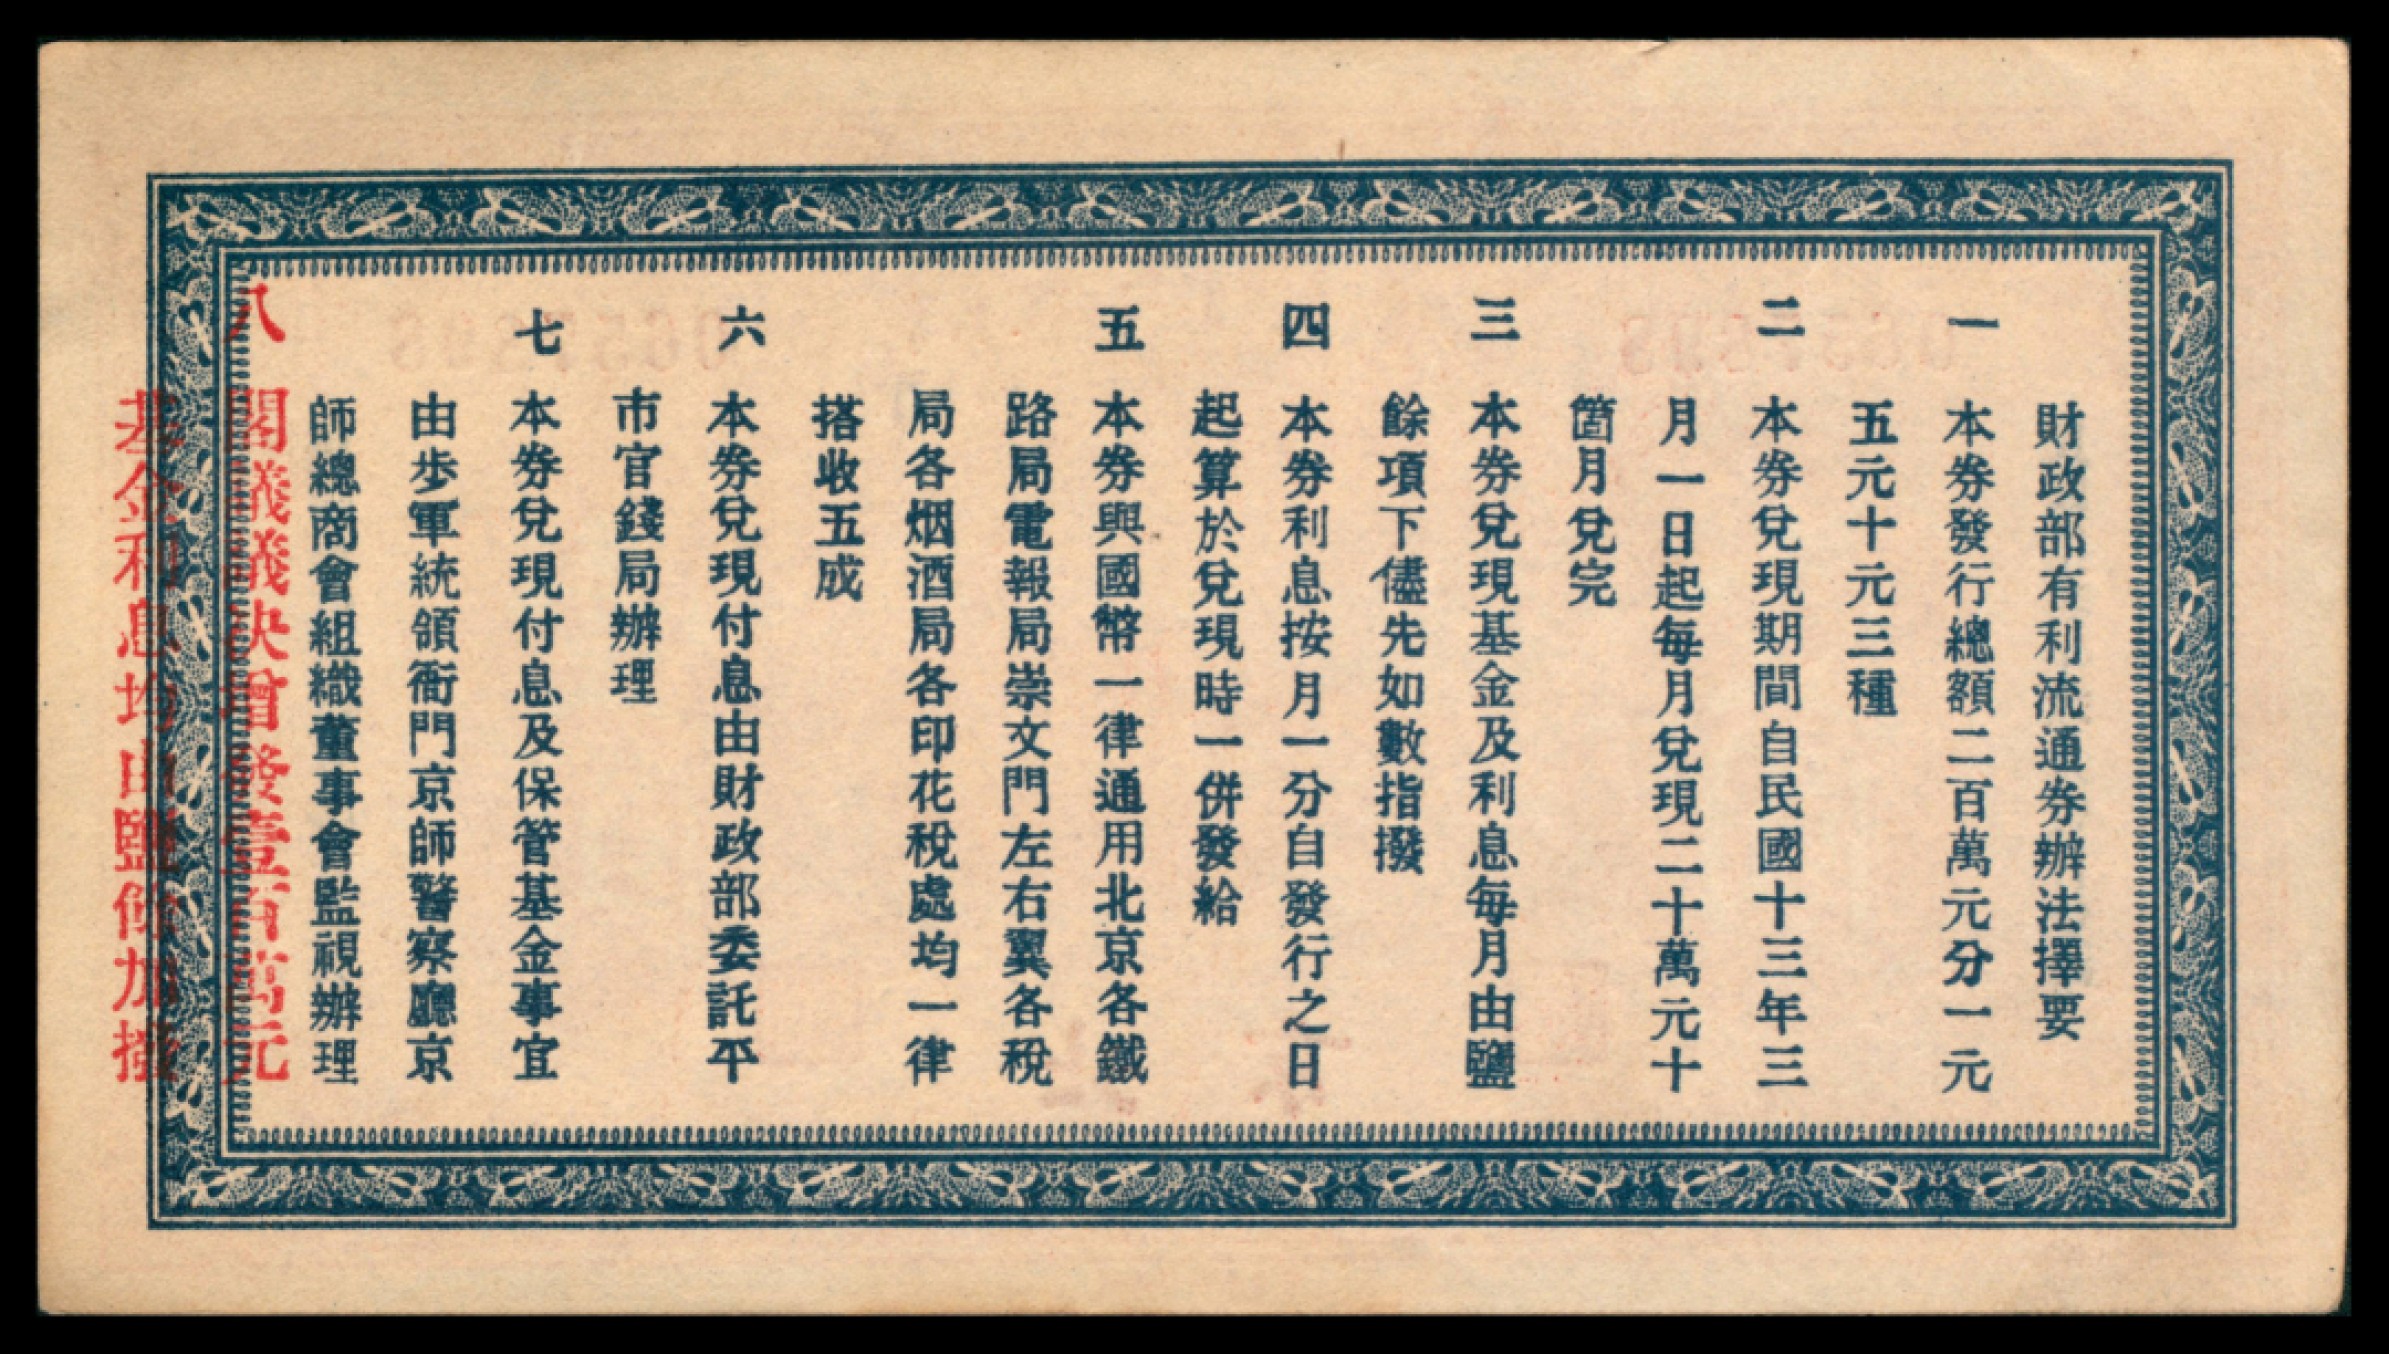 財政部有利流通券辦法擇要
一 本券發行總額二百萬元分一元
五元十元三種
二 本券兌現期間自民國十三年三
月一日起每月兌現二十萬元十
箇月兌完
三 本券兌現基金及利息每月由鹽
餘項下儘先如數指撥
四 本券利息按月一分自發行之日
起算於兌現時一併發給
五 本券與國幣一律通用北京各鐵
路局電報局崇文門左右翼各稅
局各烟酒局各印花稅處均一律
搭收五成
六 本券兌現付息由財政部委託平
市官錢局辦理
七 本券兌現付息及保管基金事宜
由步軍統領衙門京師警察廳京
師總商會組織董事會監視辦理
八 閣議議決增發壹百萬元
基金利息均由鹽餘加撥